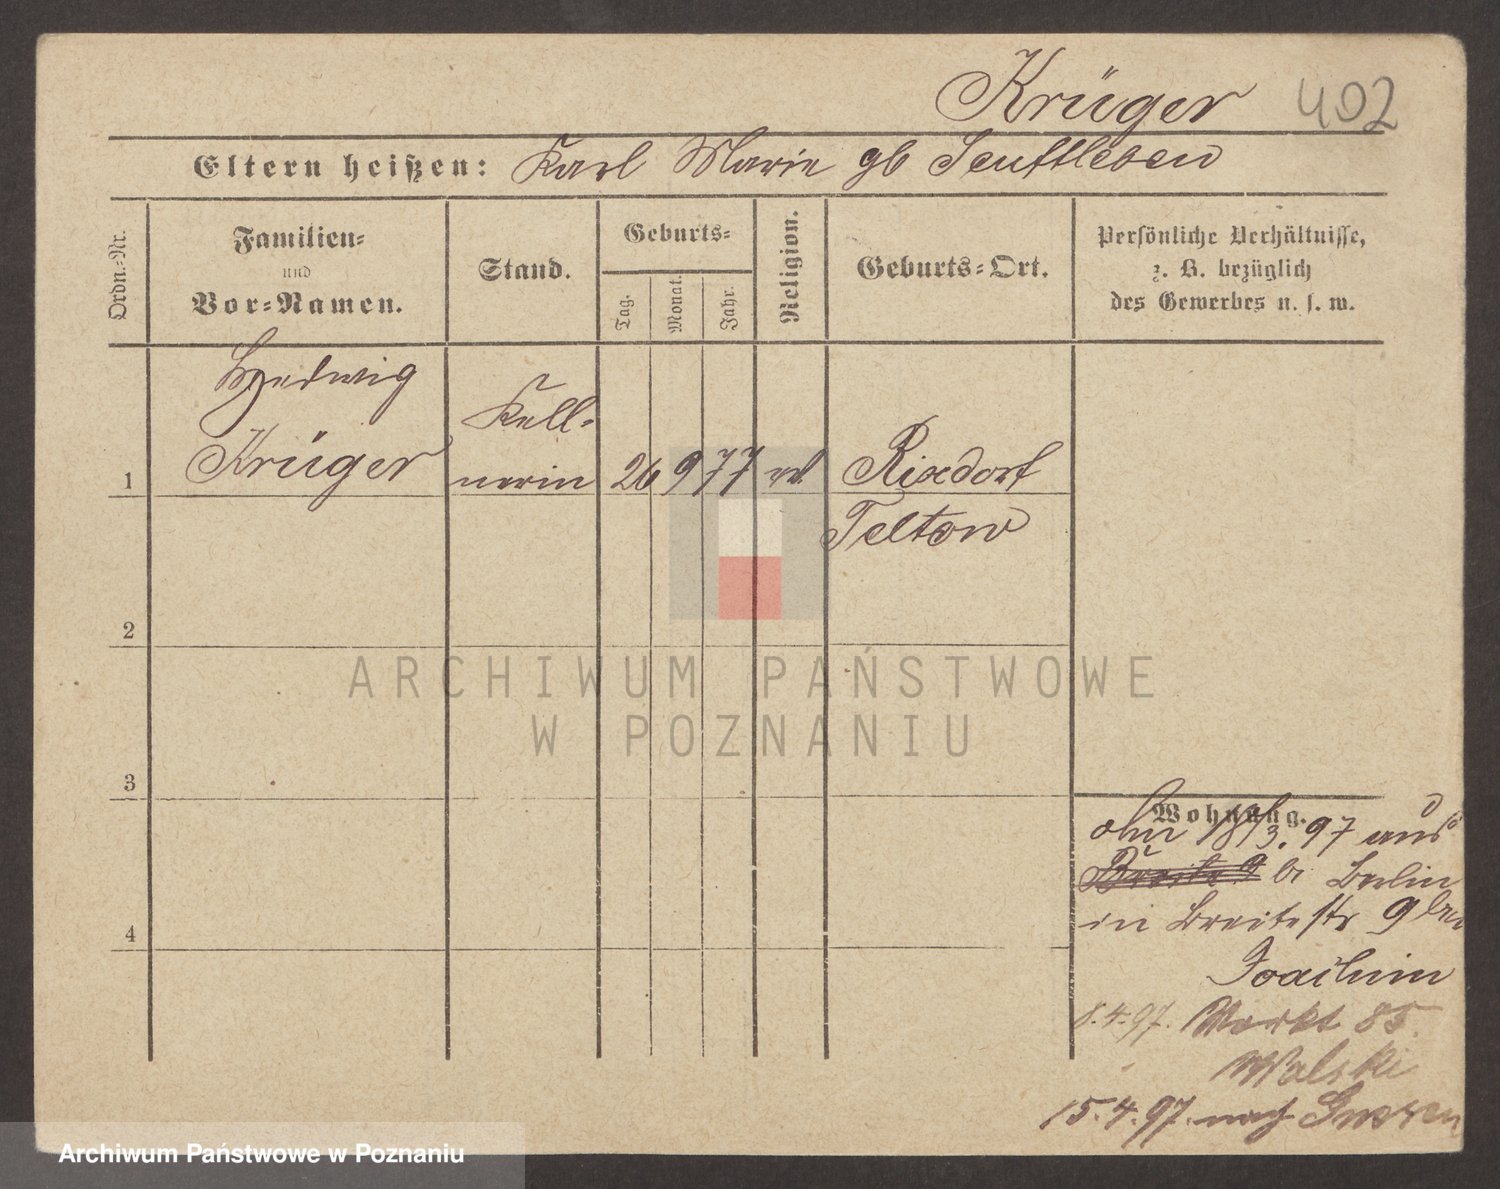 Krüger 402
Eltern heißen: Karl Marie gb Senftleben
Ordn.-Nr.
Familien-
und
Vor-Namen.
Stand.
Geburts-
Tag.
Monat.
Jahr.
Religion.
Geburts-Ort.
Persönliche Verhältnisse,
z. B. bezüglich
des Gewerbes u. s. w.
Hedwig
Krüger
Kell-
nerin
1
26 9 77
Rixdorf
Teltow
2
3
4
Wohnung.
18/3. 97 aus
Breite 9 Berlin
in Breitestr 9
Joachim
8.4.97. Markt 85.
Walski
15.4.97. nach
ARCHIWUM PAŃSTWOWE
W POZNANIU
Archiwum Państwowe w Poznaniu